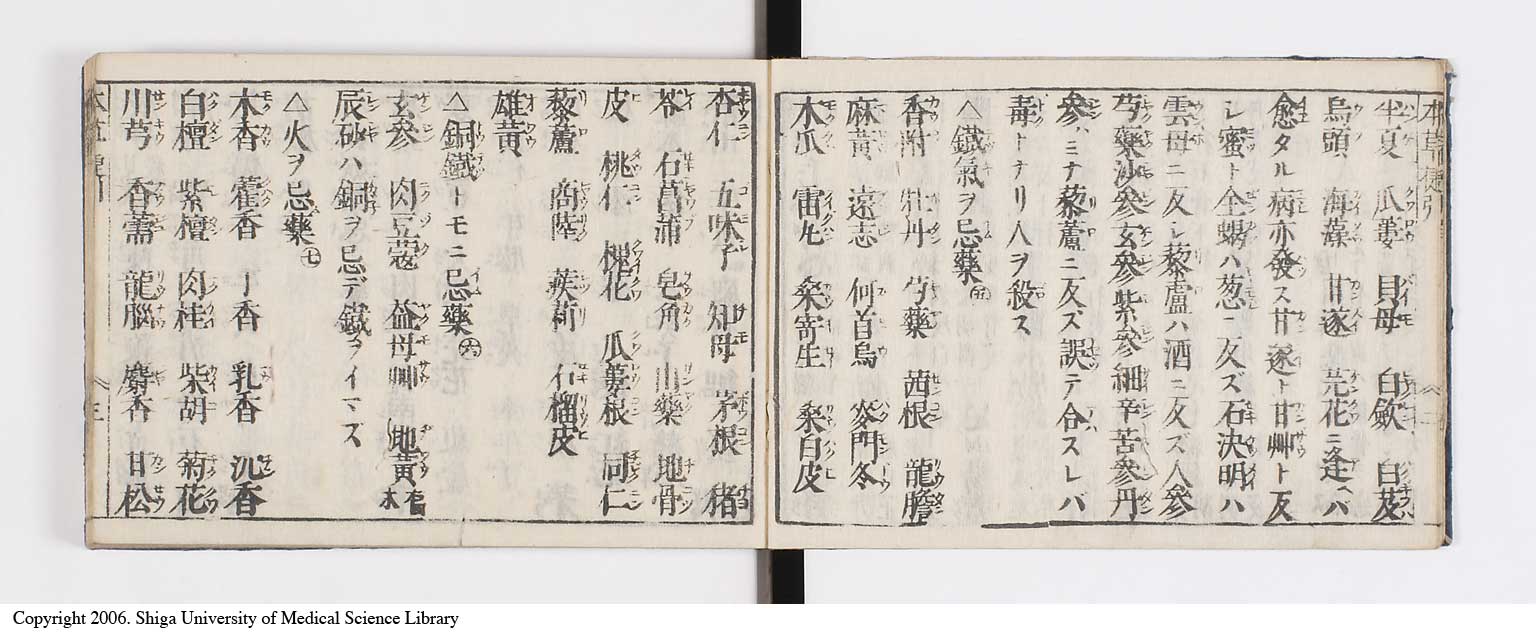 本草使引
半夏 瓜蔞 貝母 白蘞 白芨
烏頭 海藻 甘遂 芫花ニ逢ヘバ
愈タル病亦發ス甘遂ト甘艸ト反
レ蜜ト全蝎ハ葱ニ反ズ石決明ハ
雲母ニ反レ藜盧ハ酒ニ反ズ人參
芍藥沙參玄參紫參細辛苦參丹
參ハミナ藜蘆ニ反ズ誤テ合スレバ
毒トナリ人ヲ殺ス
△鐵氣ヲ忌藥㊄
香附 牡丹 芍藥 茜根 龍膽
麻黃 遠志 何首烏 麥門冬
木瓜 雷丸 桑寄生 桑白皮
杏仁 五味子 知母 茅根 猪
苓 石菖蒲 皂角 山藥 地骨
皮 桃仁 槐花 瓜蔞根 同仁
藜蘆 商陸 蒺莉 石榴皮
雄黃
△銅鐵トモニ忌藥㊅
玄參 肉豆蔻 益母艸 地黃
辰砂ハ銅ヲ忌デ鐵ヲイマズ
△火ヲ忌藥㊆
木香 藿香 丁香 乳香 沉香
白檀 紫檀 肉桂 柴胡 菊花
川芎 香薷 龍腦 麝香 甘松
Copyright 2006. Shiga University of Medical Science Library